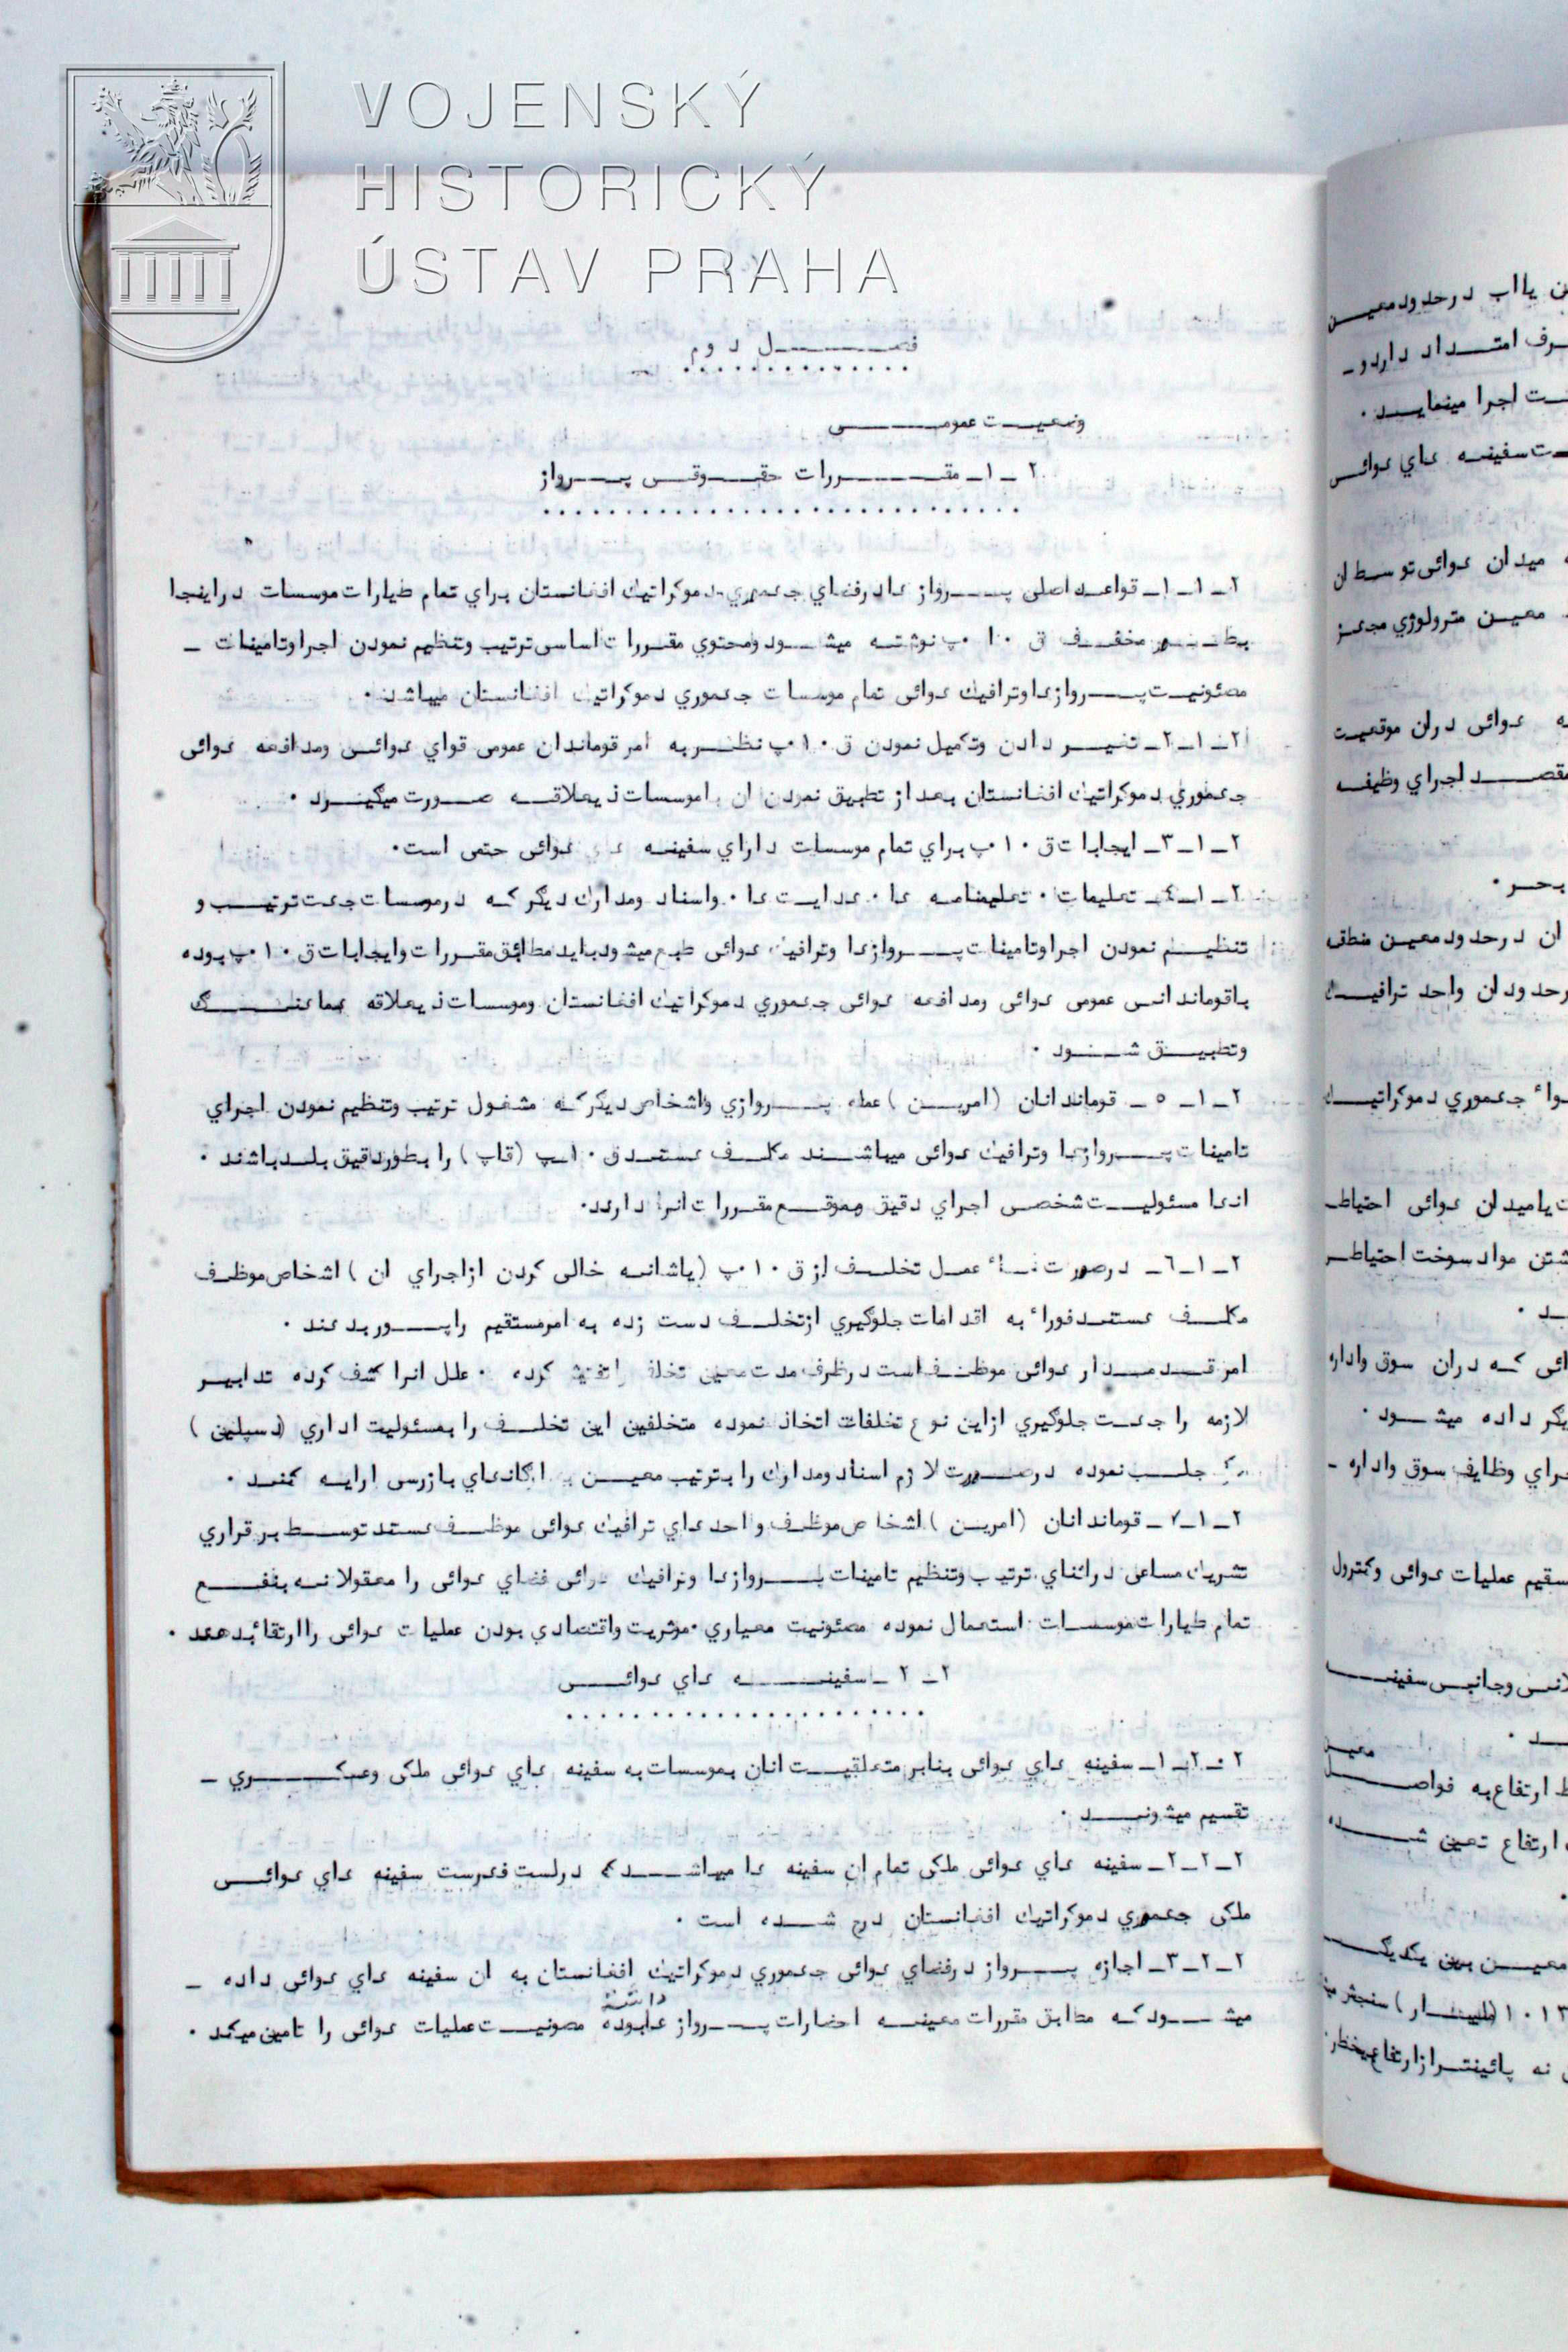 VOJENSKÝ
HISTORICKÝ
ÚSTAV PRAHA
فصل دوم
وضعیت عمومی
۲ـ۱ـ مقررات حقوقی پرواز
۲ـ۱ـ۱ـ قواعد اصلی پرواز ها در فضای جمهوری دموکراتیک افغانستان برای تمام طیارات موسسات دراینجا
بطور مخفف ق ۱۰ پ نوشته میشود ومحتوی مقررات اساسی ترتیب وتنظیم نمودن اجرا وتامینات ـ
مصئونیت پروازها وترافیک هوائی تمام موسسات جمهوری دموکراتیک افغانستان میباشد.
۲ـ۱ـ۲ـ تغییر دادن وتکمیل نمودن ق ۱۰ پ نظر به امر قوماندان عمومی قوای هوائی ومدافعه هوائی
جمهوری دموکراتیک افغانستان بعد از تطبیق نمودن ان با موسسات ذیعلاقه صورت میگیرد .
۲ـ۱ـ۳ـ ایجابات ق ۱۰ پ برای تمام موسسات دارای سفینه های هوائی حتمی است.
۲ـ۱ـ٤ـ تعلیمات . تعلیمنامه ها . هدایت ها . واسناد ومدارک دیگر که درموسسات جهت ترتیب و
تنظیم نمودن اجرا وتامینات پروازها وترافیک هوائی طبع میشود باید مطابق مقررات وایجابات ق ۱۰ پ بوده
باقوماندانی عمومی هوائی ومدافعه هوائی جمهوری دموکراتیک افغانستان وموسسات ذیعلاقه هماهنگ
وتطبیق شود .
۲ـ۱ـ ٥ ـ قوماندانان (امرین) عمله پروازی واشخاص دیگر که مشغول ترتیب وتنظیم نمودن اجرای
تامینات پروازها وترافیک هوائی میباشند مکلف هستند ق ۱۰ پ (قاپ) را بطور دقیق بلد باشند .
انها مسئولیت شخصی اجرای دقیق وبموقع مقررات انرا دارند.
۲ـ۱ـ٦ـ درصورت عمل تخلف از ق ۱۰ پ (یاشانه خالی کردن ازاجرای ان) اشخاص موظف
مکلف هستند فوراً به اقدامات جلوگیری ازتخلف دست زده به امرمستقیم راپور بدهند .
امر قدمدار هوائی موظف است درظرف مدت معین تخلف را تفتیش کرده . علل انرا کشف کرده تدابیر
لازمه را جهت جلوگیری ازاین نوع تخلفات اتخاذ نموده متخلفین این تخلف را بمسئولیت اداری (دسپلین)
جلب نموده درصورت لازم اسناد ومدارک را بترتیب معین به ارگانهای بازرسی ارایه کند .
۲ـ۱ـ۷ـ قوماندانان (امرین) اشخاص موظف واحدهای ترافیک هوائی موظف هستند توسط برقراری
تشریک مساعی دراثنای ترتیب وتنظیم تامینات پروازها وترافیک هوائی فضای هوائی را معقولانه بنفع
تمام طیارات موسسات استعمال نموده مصئونیت معیاری . موثریت واقتصادی بودن عملیات هوائی را ارتقأ بدهند .
۲ـ ۲ ـ سفینه های هوائی
۲ـ۲ـ۱ـ سفینه های هوائی بنابر متعلقیت انان بموسسات به سفینه های هوائی ملکی وعسکری ـ
تقسیم میشوند .
۲ـ۲ـ۲ـ سفینه های هوائی ملکی تمام ان سفینه ها میباشد که درلست فهرست سفینه های هوائی
ملکی جمهوری دموکراتیک افغانستان درج شده است .
۲ـ۲ـ۳ـ اجازه پرواز درفضای هوائی جمهوری دموکراتیک افغانستان به ان سفینه های هوائی داده ـ
داشته
میشود که مطابق مقررات معینه احضارات پرواز هابوده مصونیت عملیات هوائی را تامین میکند .
ن یااب درحدود معین
رف امتداد داردو ـ
ت اجرا مینماید .
ت سفینه های هوائی
میدان هوائی توسط ان
معین مترولوژی مجهز
ه هوائی دران موقعیت
مقصد اجرای وظیفه
بحر .
ان درحدود معین منطق
رحدود ان واحد ترافیک
وا جمهوری دموکراتیک
ت یامیدان هوائی احتیاط
شتن مواد سوخت احتیاط
د .
ائی که دران سوق واداره
یگر داده میشود .
جرای وظایف سوق واداره ـ
سقیم عملیات هوائی وکنترول
لانی وجانبی سفینه
د .
معین
ط ارتفاع به فواصل
ارتفاع تعین شده
معین بین یکدیگر
نه پائینتر ازارتفاع بیخطر